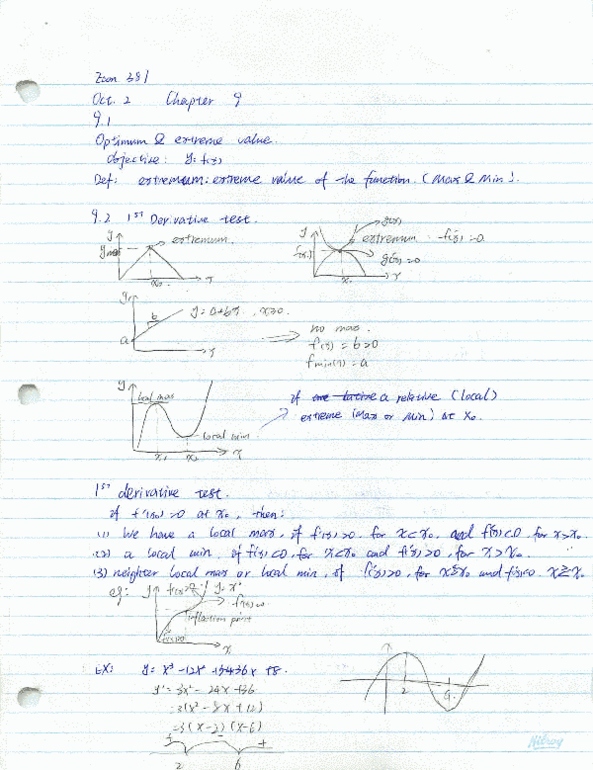 Econ 381
Oct. 2 Chapter 9
9.1
Optimum & extreme value.
Objective: y=f(x)
Def: extremeum: extreme value of the function. (Max & Min).
9.2 1st Derivative test.
y extremum. x x₀
y g(x) extremum f'(x)=0 f(x₀) g'(x)=0 x₀ x
y a b y=a+bx, x≥0 x
no max.
f'(x)=b>0
fmin(x)=a
y local max local min x₁ x₂ x
if a relative (local)
extreme (max or min) at x₀.
1st derivative test.
if f'(x₀)=0 at x₀, then:
(1) We have a local max, if f'(x)>0 for x<x₀ and f'(x)<0 for x>x₀.
(2) a local min, if f'(x)<0, for x<x₀ and f'(x)>0, for x>x₀.
(3) neighter local max or local min, if f'(x)>0, for
eg: y inflection point x
EX: y=x³-12x²+36x+8.
y'=3x²-24x+36
=3(x²-8x+12)
=3(x-2)(x-6)
+ - +
2 6
2 6
Hilroy